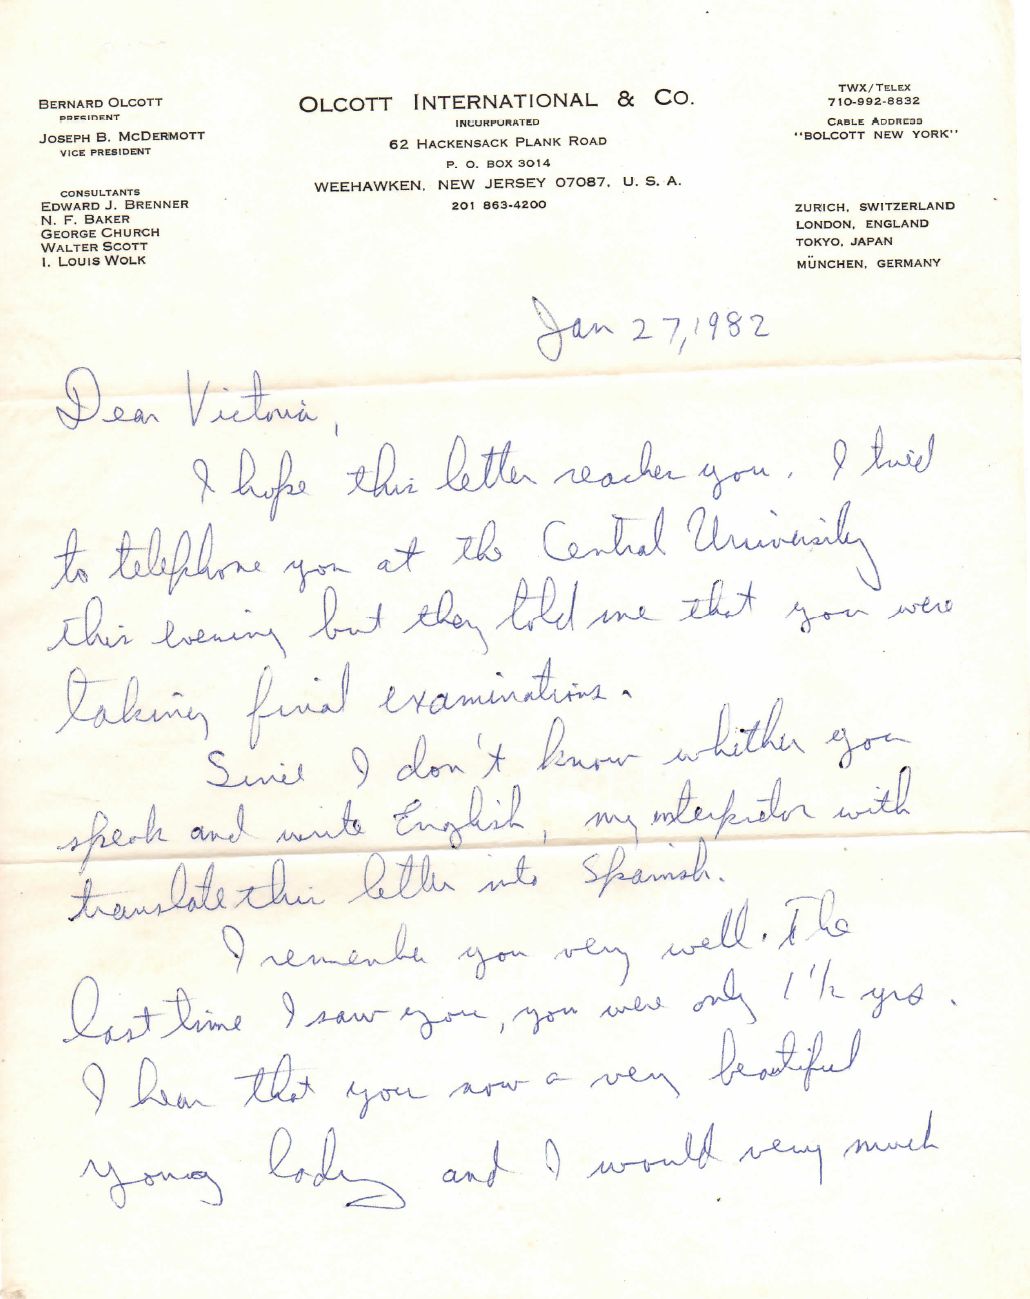 BERNARD OLCOTT
PRESIDENT
JOSEPH B. MCDERMOTT
VICE PRESIDENT
CONSULTANTS
EDWARD J. BRENNER
N. F. BAKER
GEORGE CHURCH
WALTER SCOTT
I. LOUIS WOLK
OLCOTT INTERNATIONAL & CO.
INCORPORATED
62 HACKENSACK PLANK ROAD
P. O. BOX 3014
WEEHAWKEN, NEW JERSEY 07087, U. S. A.
201 863-4200
TWX/TELEX
710-992-8832
CABLE ADDRESS
"BOLCOTT NEW YORK"
ZURICH, SWITZERLAND
LONDON, ENGLAND
TOKYO, JAPAN
MÜNCHEN, GERMANY
Jan 27, 1982
Dear Victoria,
I hope this letter reaches you. I tried
to telephone you at the Central University
this evening but they told me that you were
taking final examinations.
Since I don't know whither you
speak and write English, my interpretor with
translate this letter into Spanish.
I remember you very well. The
last time I saw you, you were only 1 1/2 yrs.
I hear that you now a very beautiful
young lady and I would very much